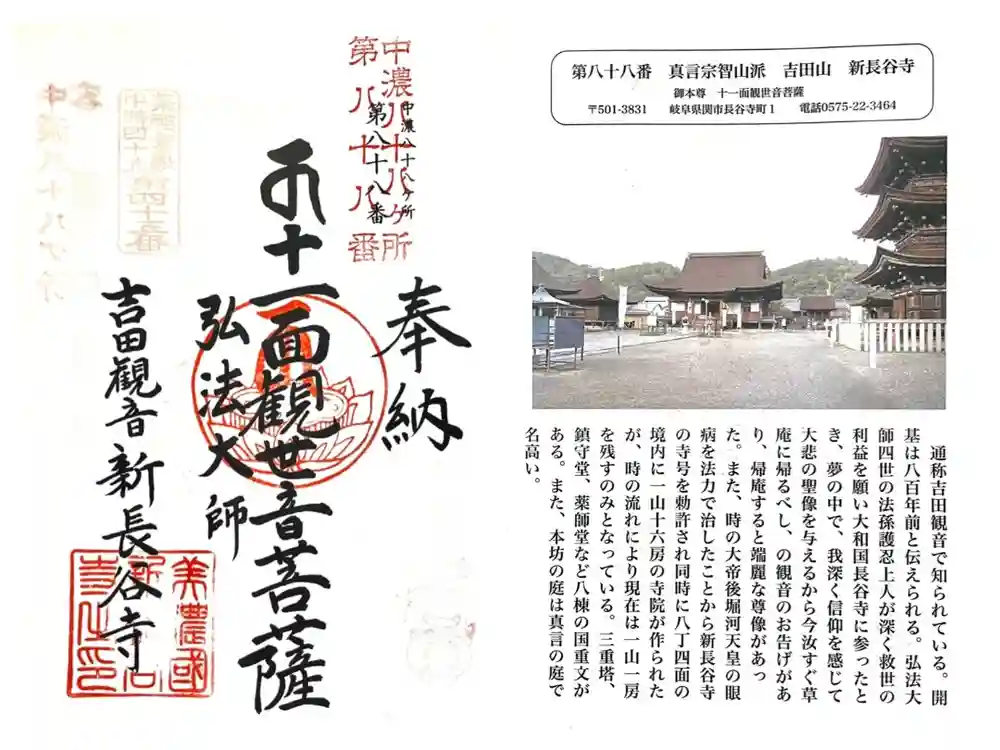 中濃八十八ヶ所
第八十八番
中濃八十八ヶ所
第八十八番
奉納
十一面観世音菩薩
弘法大師
吉田観音新長谷寺
美濃國
新長谷
寺之印
第八十八番　真言宗智山派　吉田山　新長谷寺
御本尊　十一面観世音菩薩
〒501-3831　岐阜県関市長谷寺町1　電話0575-22-3464
通称吉田観音で知られている。開
基は八百年前と伝えられる。弘法大
師四世の法孫護忍上人が深く救世の
利益を願い大和国長谷寺に参ったと
き、夢の中で、我深く信仰を感じて
大悲の聖像を与えるから今汝すぐ草
庵に帰るべし、の観音のお告げがあ
り、帰庵すると端麗な尊像があっ
た。また、時の大帝後堀河天皇の眼
病を法力で治したことから新長谷寺
の寺号を勅許され同時に八丁四面の
境内に一山十六房の寺院が作られた
が、時の流れにより現在は一山一房
を残すのみとなっている。三重塔、
鎮守堂、薬師堂など八棟の国重文が
ある。また、本坊の庭は真言の庭で
名高い。